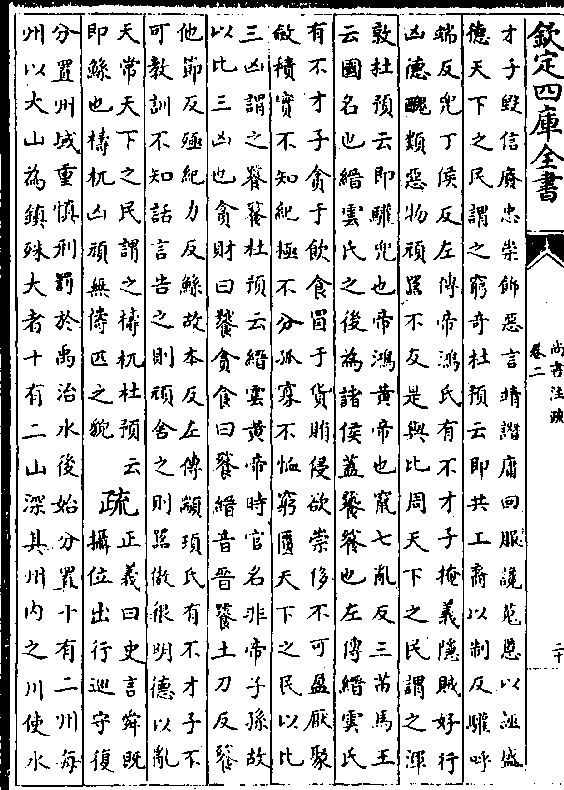 欽定四庫全書
尚書注疏
卷二
二十
才子毀信廢忠崇飾惡言靖譖庸回服讒蒐慝以誣盛
德天下之民謂之窮奇杜預云即共工裔以制反驩呼
端反兜丁侯反左傳帝鴻氏有不才子掩義隱賊好行
凶德醜類惡物頑嚚不友是與比周天下之民謂之渾
敦杜預云即驩兜也帝鴻黄帝也竄七亂反三苗馬王
云國名也縉雲氏之後為諸侯蓋饕餮也左傳縉雲氏
有不才子貪于飲食冒于貨賄侵欲崇侈不可盈厭聚
斂積實不知紀極不分孤寡不恤窮匱天下之民以比
三凶謂之饕餮杜預云縉雲黄帝時官名非帝子孫故
以比三凶也貪財曰饕貪食曰餮縉音晉饕土刀反餮
他節反殛紀力反鯀故本反左傳顓頊氏有不才子不
可教訓不知話言告之則頑舍之則嚚傲很明德以亂
天常天下之民謂之檮杌杜預云
即鯀也檮杌凶頑無儔匹之貌
疏
正義曰史言舜既
攝位出行巡守復
分置州域重慎刑罰於禹治水後始分置十有二州每
州以大山為鎮殊大者十有二山深其州内之川使水